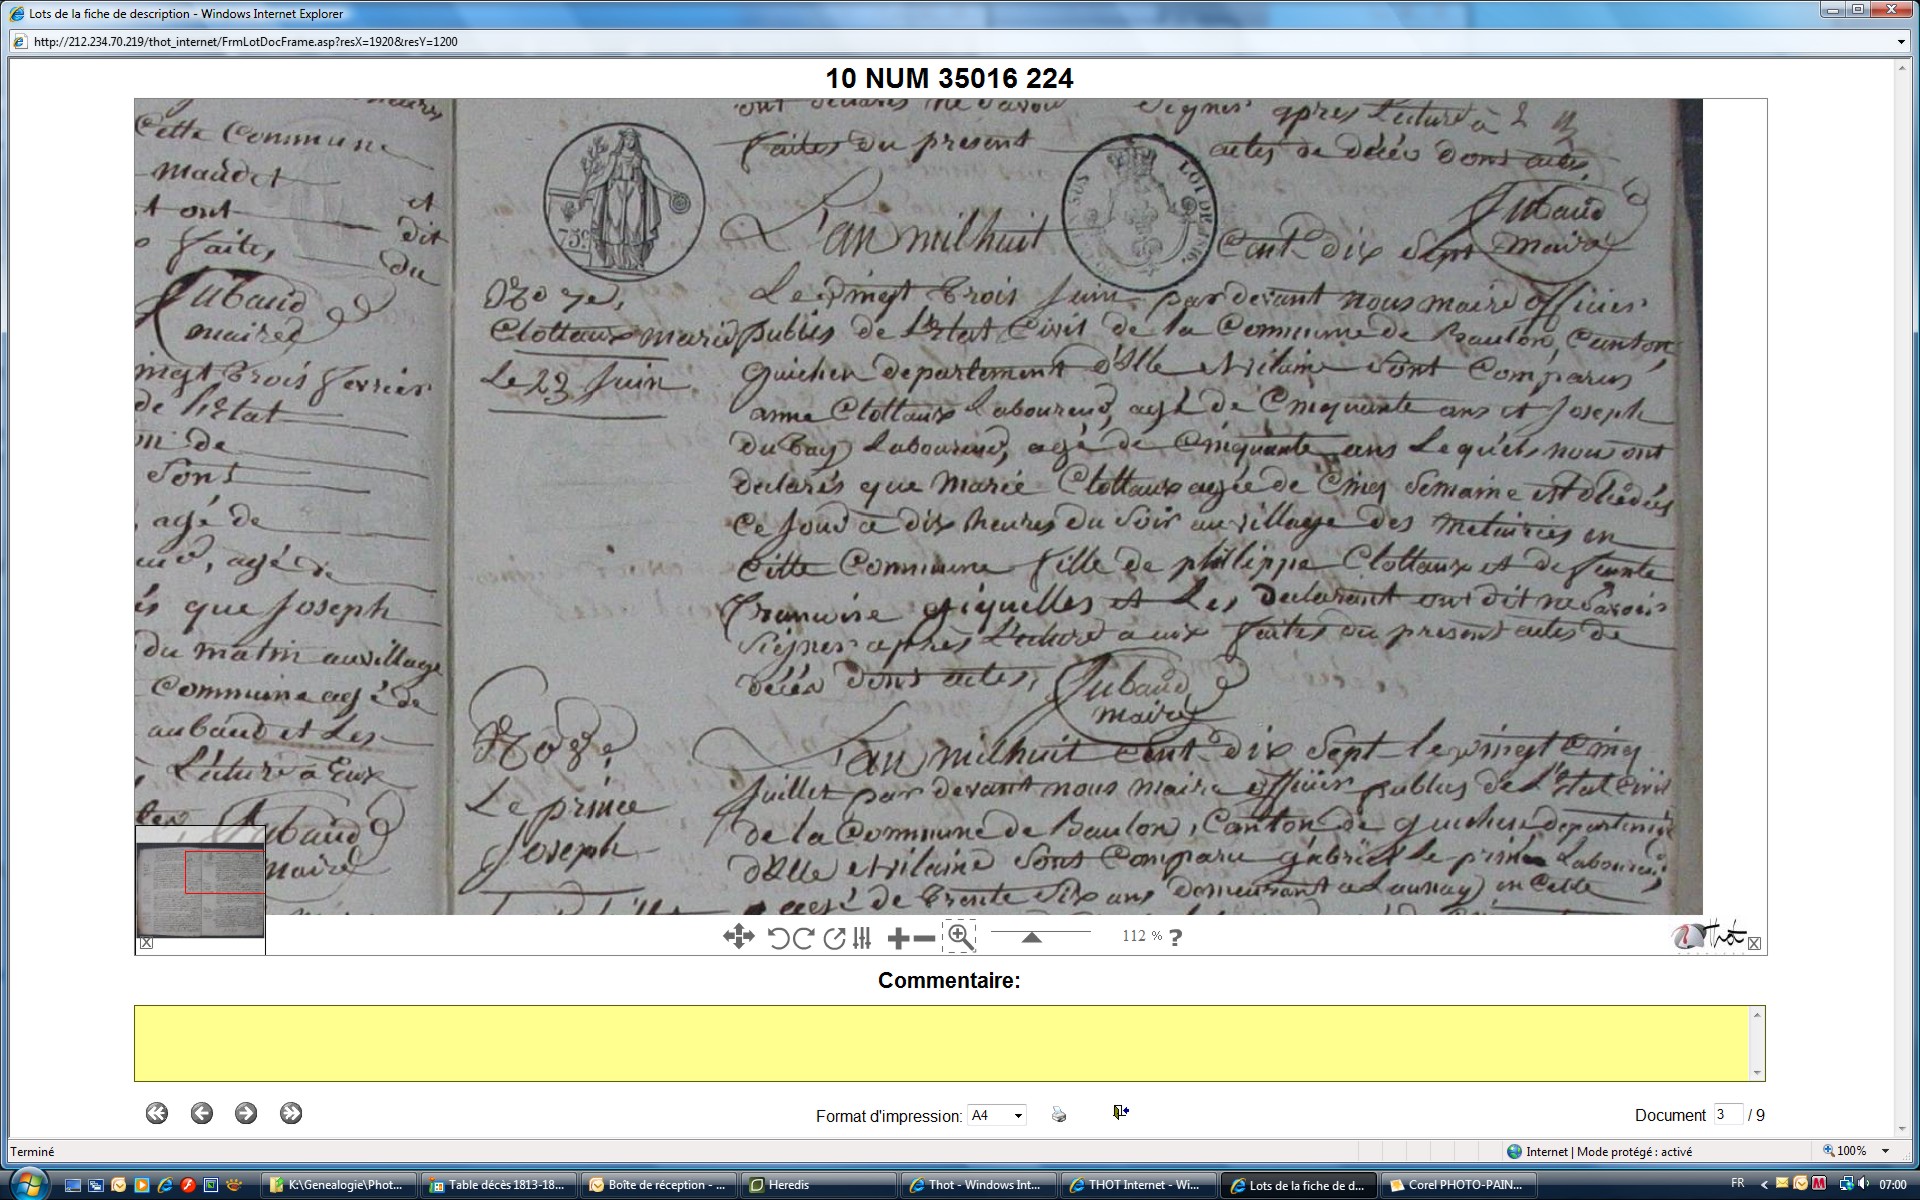 Lots de la fiche de description - Windows Internet Explorer
http://212.234.70.219/thot_internet/FrmLotDocFrame.asp?resX=1920&resY=1200
10 NUM 35016 224
Cette Commune
maudet
et ont et
dit
faites du
Aubaud
maire
vingt trois fevrier
de l'Etat
on de
Sont
, agé de
, agé de
es que Joseph
du matin au village
Commune agé de
aubaud et Les
Lecture à Eux
Aubaud
maire
75c
No 7e,
Clottaux marie
Le 23 Juin
No 8e,
Le prince
Joseph
ont declarés ne savoir signer apres Lecture à
faites du present actes de décés dons actes,
LOI DE 1816.
Aubaud
maire
L'an mil huit Cent dix Sept
Le Vingt trois Juin par devant nous maire officier
publis de L'Etat Civil de la Commune de Baulon, Canton
Guichen departement d'Ille et vilaine Sont Comparus
anne Clottaux Laboureur, agé de Cinquante ans et Joseph
du bay Laboureur, agé de Cinquante ans Lequels nous ont
declarés que Marie Clottaux agée de Cinq Semaine est décédés
Ce Jour a dix heures du Soir au village des Metairies en
Cette Commune fille de philippe Clottaux et de feunte
francoise giquelles et Les Declarant ont dit ne Savoir
Signer aprés Lecture a eux faites du present actes de
décés dons actes,
Aubaud
maire
L'an mil huit Cent dix Sept le vingt Cinq
Juillet par devant nous maire officier publis de L'Etat Civil
de la Commune de Baulon, Canton de guichen departement
d'Ille et vilaine Sont Comparu gabriel le prince Laboureur,
agé de Trente Six ans demeurant a Launay en Cette
112 % ?
Thot
Commentaire:
Format d'impression: A4
Document 3 / 9
Terminé
Internet | Mode protégé : activé
100%
K:\Genealogie\Phot...
Table décès 1813-18...
Boîte de réception - ...
Heredis
Thot - Windows Int...
THOT Internet - Wi...
Lots de la fiche de d...
Corel PHOTO-PAIN...
FR
07:00